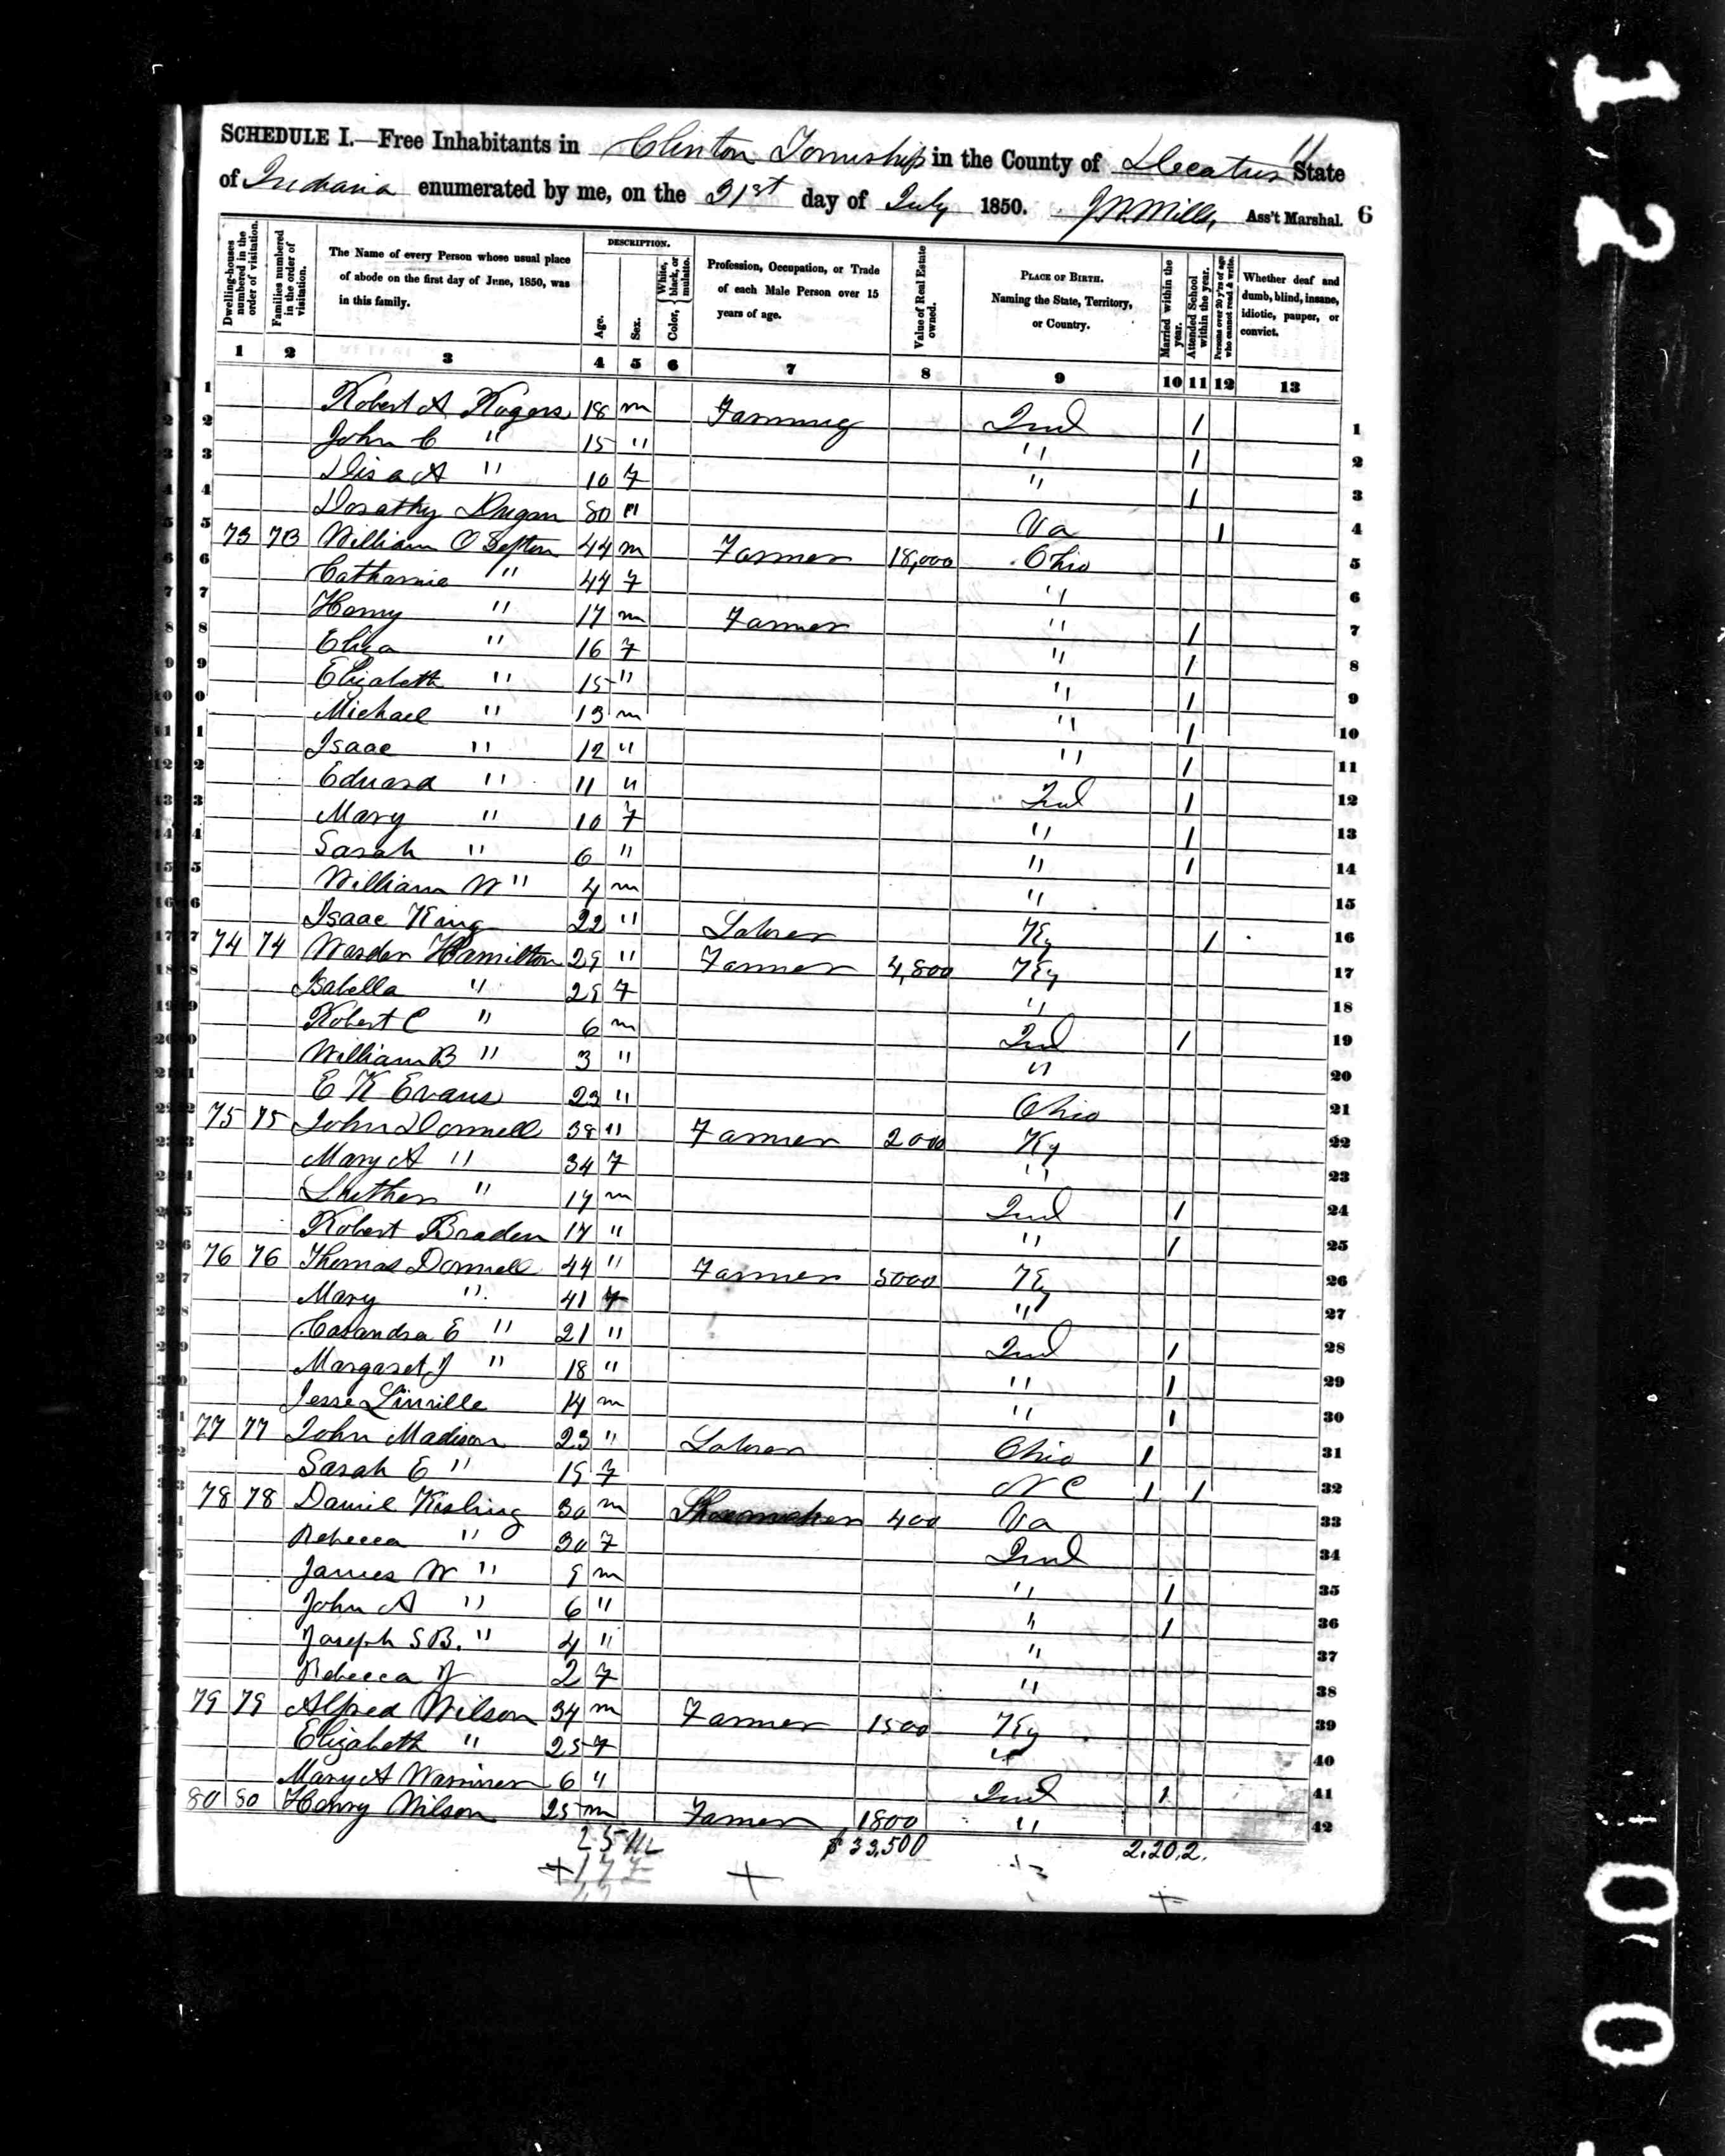 11
SCHEDULE I.—Free Inhabitants in Clinton Township in the County of Decatur State
of Indiana enumerated by me, on the 31st day of July 1850. J W Mills, Ass't Marshal. 6
Dwelling-houses numbered in the order of visitation. Families numbered in the order of visitation. The Name of every Person whose usual place of abode on the first day of June, 1850, was in this family. DESCRIPTION. Age. Sex. Color, White, black, or mulatto. Profession, Occupation, or Trade of each Male Person over 15 years of age. Value of Real Estate owned. PLACE OF BIRTH. Naming the State, Territory, or Country. Married within the year. Attended School within the year. Persons over 20 y'rs of age who cannot read & write. Whether deaf and dumb, blind, insane, idiotic, pauper, or convict.
1 2 3 4 5 6 7 8 9 10 11 12 13
1 Robert A Rogers 18 m Farming Ind 1 1
2 John C " 15 " " 1 2
3 Lisa A " 10 F " 1 3
4 Dorathy Dugan 80 " Va 1 4
5 73 73 William O Sefton 44 m Farmer 18,000 Ohio 5
6 Catharine " 44 F " 6
7 Harry " 17 m Farmer " 1 7
8 Eliza " 16 F " 1 8
9 Elizabeth " 15 " " 1 9
10 Michael " 13 m " 1 10
11 Isaac " 12 " " 1 11
12 Edward " 11 " Ind 1 12
13 Mary " 10 F " 1 13
14 Sarah " 6 " " 1 14
15 William W " 4 m " 15
16 Isaac King 22 " Laborer Ky 1 16
17 74 74 Warder Hamilton 29 " Farmer 4,800 Ky 17
18 Isabella " 29 F " 18
19 Robert C " 6 m Ind 1 19
20 William B " 3 " " 20
21 E K Evans 23 " Ohio 21
22 75 75 John Donnell 38 " Farmer 2000 Ky 22
23 Mary A " 34 F " 23
24 Luther " 14 m Ind 1 24
25 Robert Braden 14 " " 1 25
26 76 76 Thomas Donnell 44 " Farmer 5000 Ky 26
27 Mary " 41 F " 27
28 Casandra E " 21 " Ind 1 28
29 Margaret J " 18 " " 1 29
30 Jesse Linville 14 m " 1 30
31 77 77 John Madison 23 " Laborer Ohio 1 31
32 Sarah E " 19 F N C 1 1 32
33 78 78 Daniel Kisling 30 m Shoemaker 400 Va 33
34 Rebecca " 30 F Ind 34
35 James W " 9 m " 1 35
36 John A " 6 " " 1 36
37 Joseph S B. " 4 " " 37
38 Rebecca J 2 F " 38
39 79 79 Alfred Wilson 34 m Farmer 1500 Ky 39
40 Elizabeth " 25 F " 40
41 Mary A Warriner 6 " Ind 1 41
42 80 80 Henry Wilson 25 m Farmer 1800 " 42
25 M $33,500 2.20.2.
+17 F
42
12
100